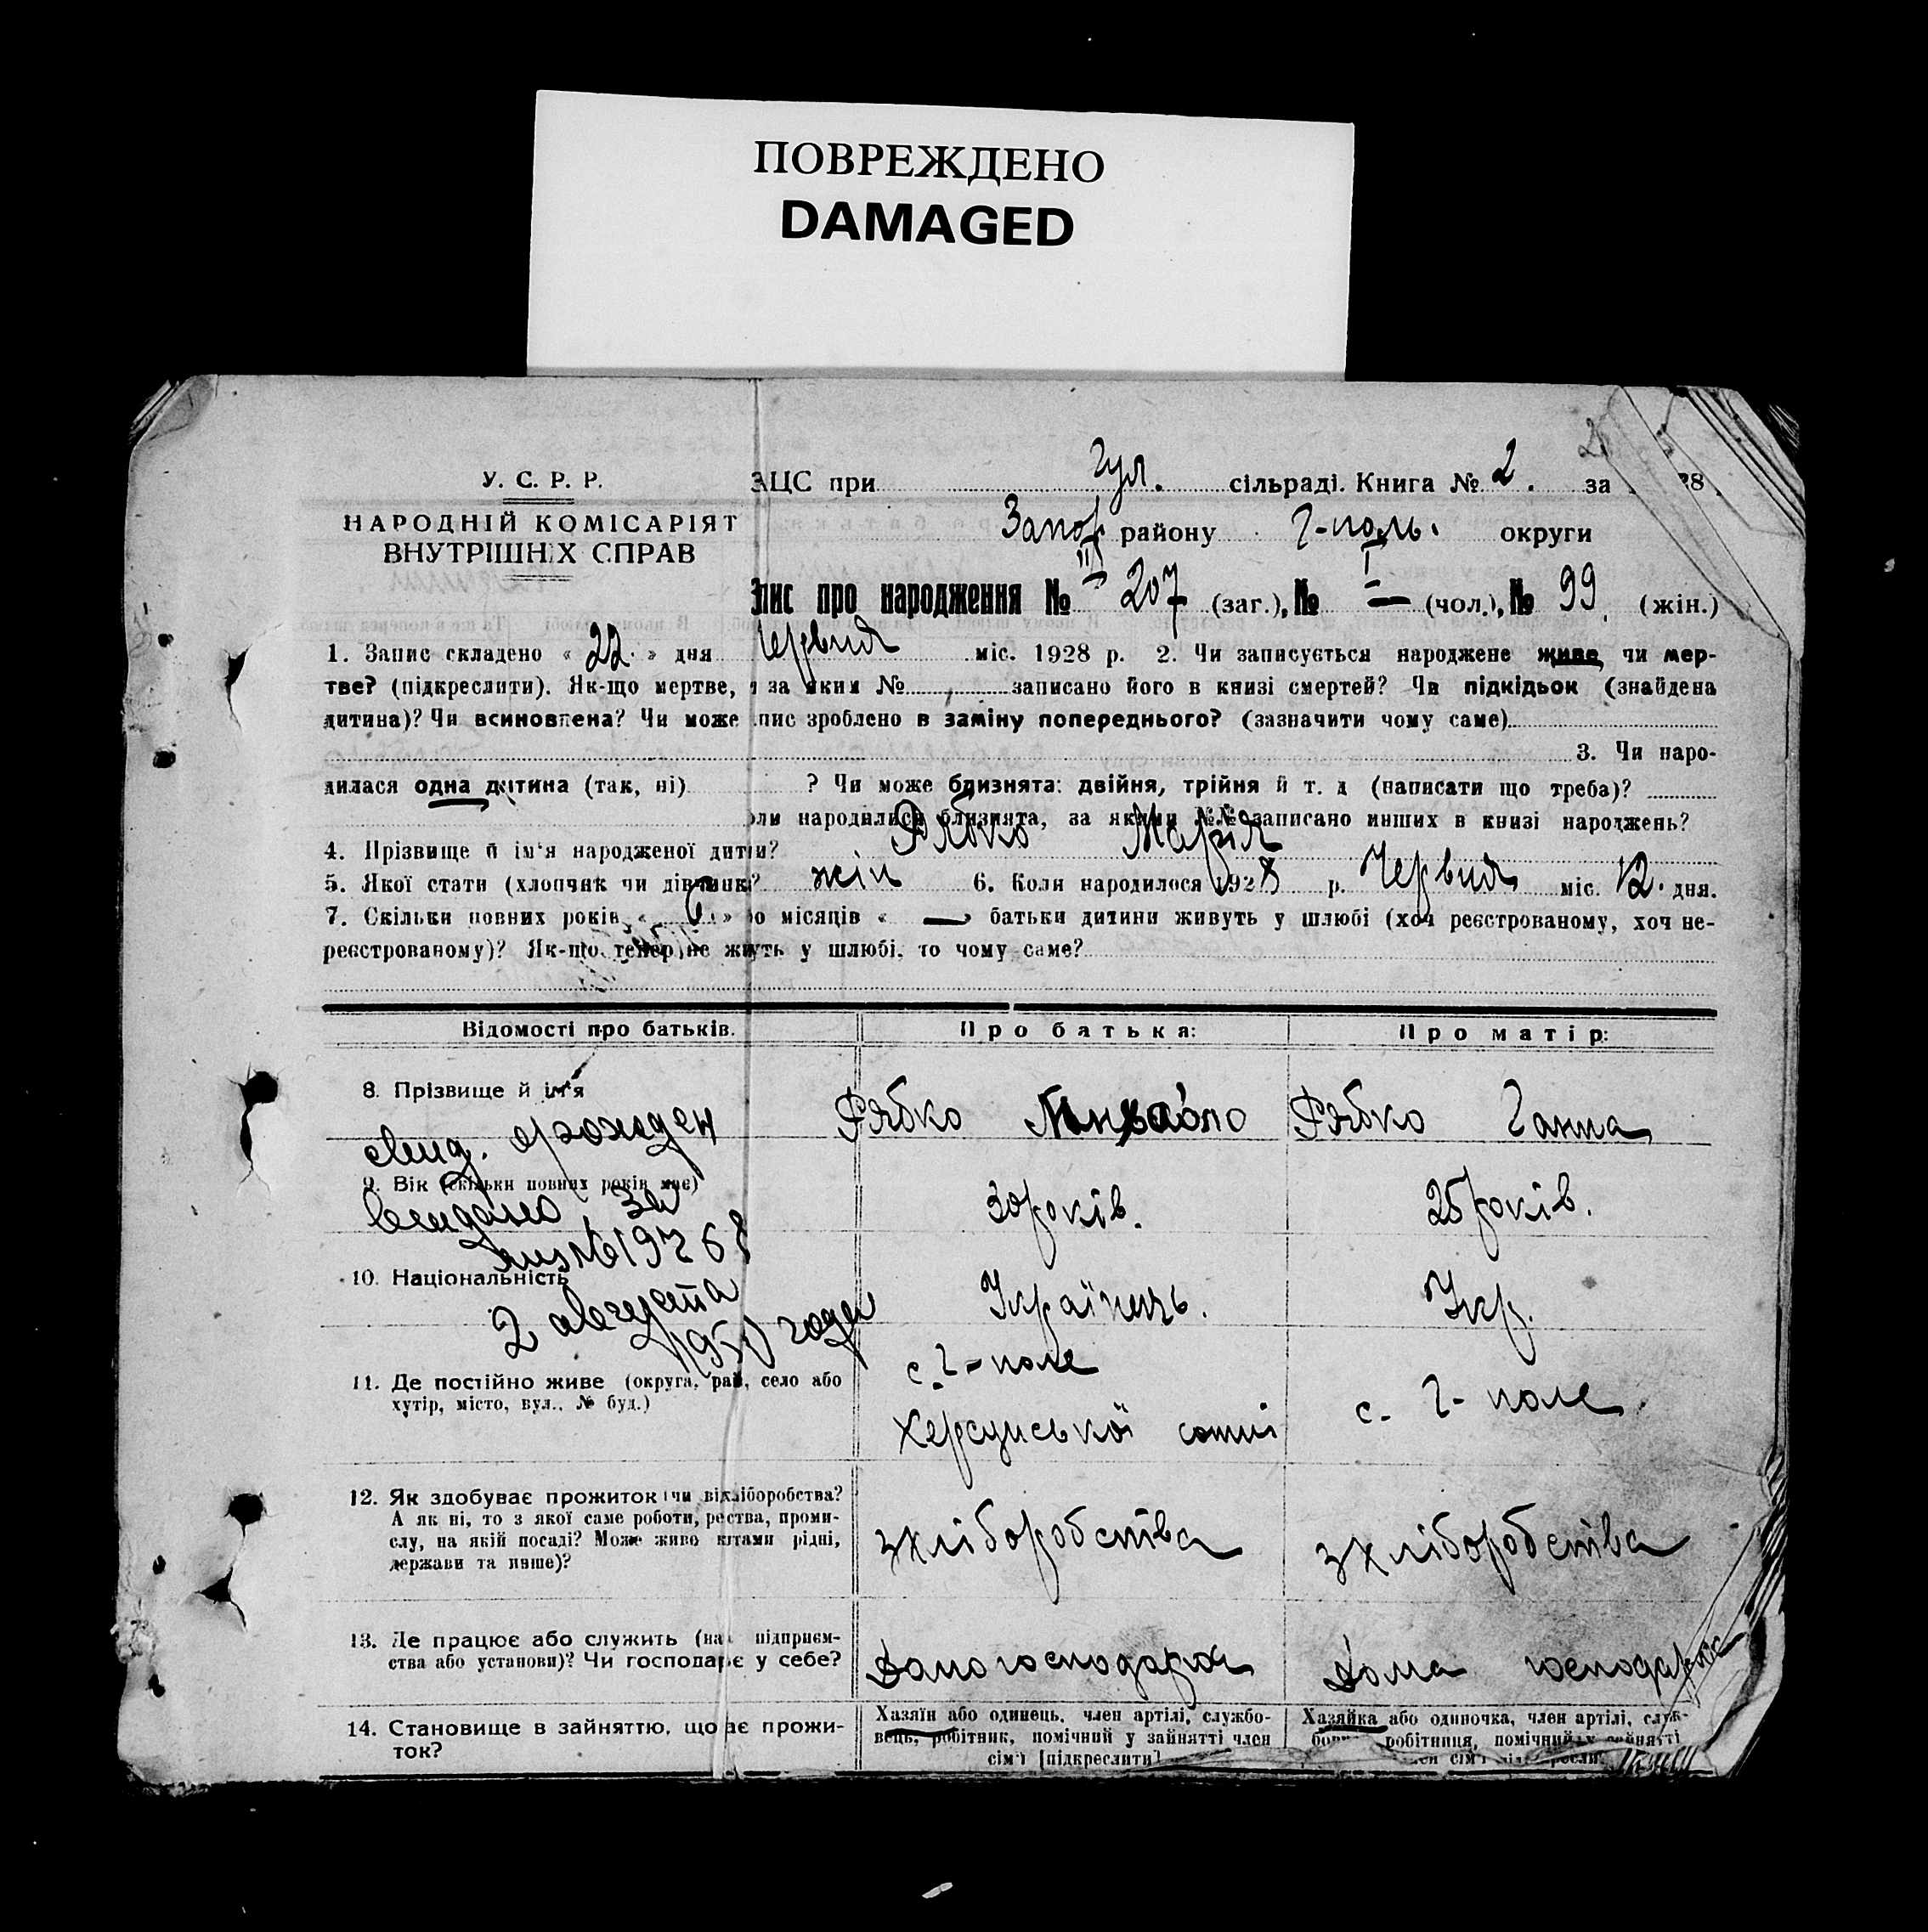 ПОВРЕЖДЕНО
DAMAGED
У. С. Р. Р.
НАРОДНІЙ КОМІСАРІЯТ
ВНУТРІШНІХ СПРАВ
ЗАЦС при Гул. сільраді. Книга № 2. за 28
Запор району Г-поль. округи
пис про народження № III 207 (заг.), № I — (чол.), № 99 (жін.)
1. Запис складено « 22 » дня Червня міс. 1928 р. 2. Чи записується народжене живе чи мер-
тве? (підкреслити). Як-що мертве, за яким № записано його в книзі смертей? Чи підкідьок (знайдена
дитина)? Чи всиновлена? Чи може пис зроблено в заміну попереднього? (зазначити чому саме)
3. Чи наро-
дилася одна дитина (так, ні) ? Чи може близнята: двійня, трійня й т. д (написати що треба)?
оли народились близнята, за якими №№ записано инших в книзі народжень?
4. Прізвище й ім'я народженої дитини? Рябко Марія
5. Якої стати (хлопчик чи дівчинка? жін 6. Коли народилося 1928 р. Червня міс. 12. дня.
7. Скільки повних років « 6 » о місяців « — » батьки дитини живуть у шлюбі (хоч реєстрованому, хоч не-
реєстрованому)? Як-що тепер не живуть у шлюбі, то чому саме?
Відомості про батьків.
Про батька:
Про матір:
8. Прізвище й ім'я
Рябко Михайло
Рябко Ганна
свид. о рожден
9. Вік (скільки повних років має)
30 років.
25 років.
выдано за
10. Національність
Українець.
Укр.
2 августа
195 года
11. Де постійно живе (округа, рай, село або
хутір, місто, вул., № буд.)
с. Г-поле
Херсунської сотні
с. Г-поле
12. Як здобуває прожиток чи від хліборобства?
А як ні, то з якої саме роботи, рества, проми-
слу, на якій посаді? Може живо коштами рідні,
держави та инше)?
з хліборобства
з хліборобства
13. Де працює або служить (на підприєм-
ства або установи)? Чи господарє у себе?
Дома господарює
Дома господарює
14. Становище в зайняттю, що дає прожи-
ток?
Хазяїн або одинець, член артілі, службо-
вець, робітник, помічний у зайнятті член
сім'ї [підкреслити]
Хазяйка або одиночка, член артілі, служ-
бовиця, робітниця, помічний у зайнятті